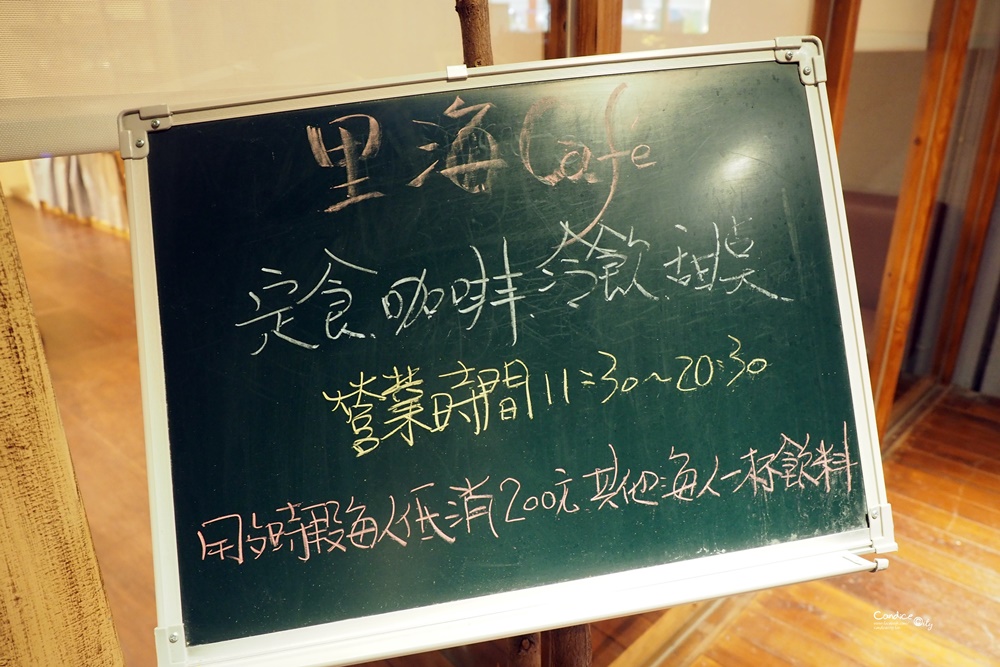 里海Café
定食.咖啡.冷飲.甜點
營業時間11:30~20:30
用歺時段每人低消200元 其他每人一杯飲料
Candice